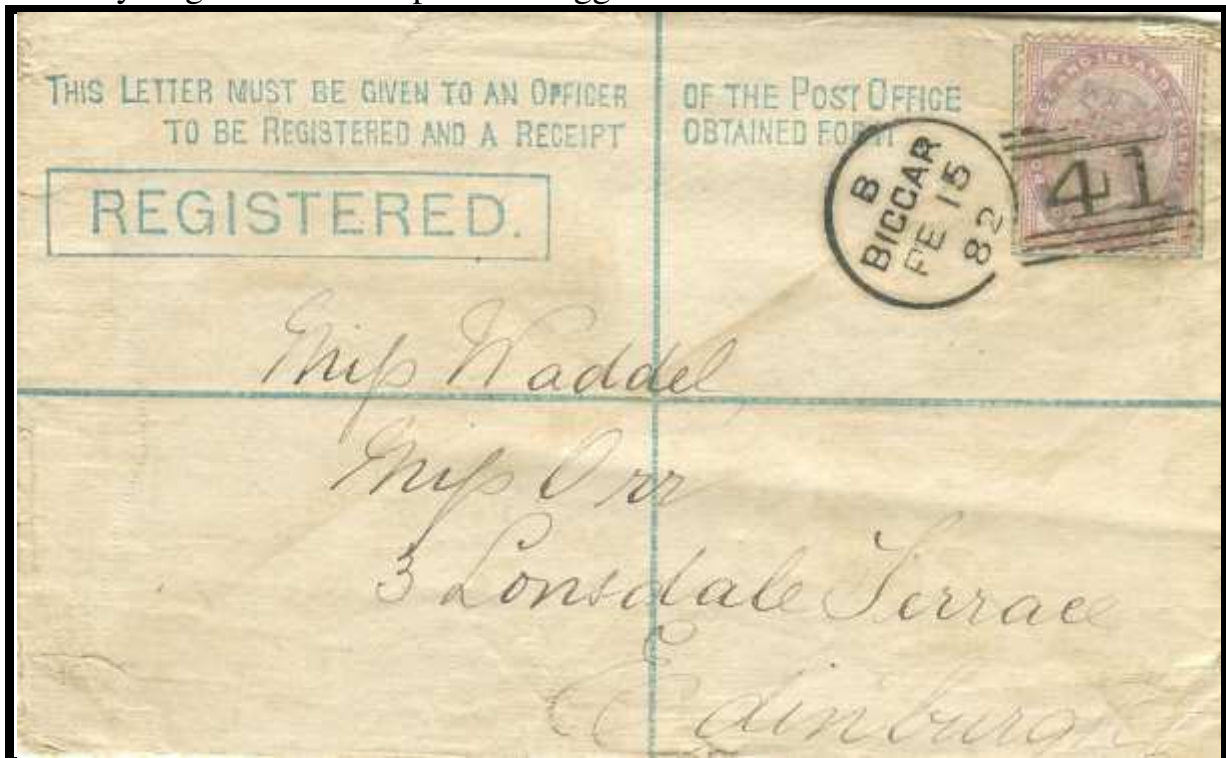 THIS LETTER MUST BE GIVEN TO AN OFFICER OF THE POST OFFICE
TO BE REGISTERED AND A RECEIPT OBTAINED FOR IT
REGISTERED.
B
BIGGAR
FE 15
82
41
Miss Waddel
Miss Orr
3 Lonsdale Terrace
Edinburgh